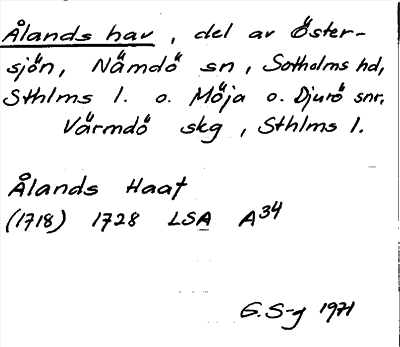 Ålands hav, del av Öster-
sjön, Nämdö sn, Sotholms hd,
Sthlms l. o. Möja o. Djurö snr,
Värmdö skg, Sthlms l.
Ålands Haaf
(1718) 1728 LSA A34
G.S-g 1971